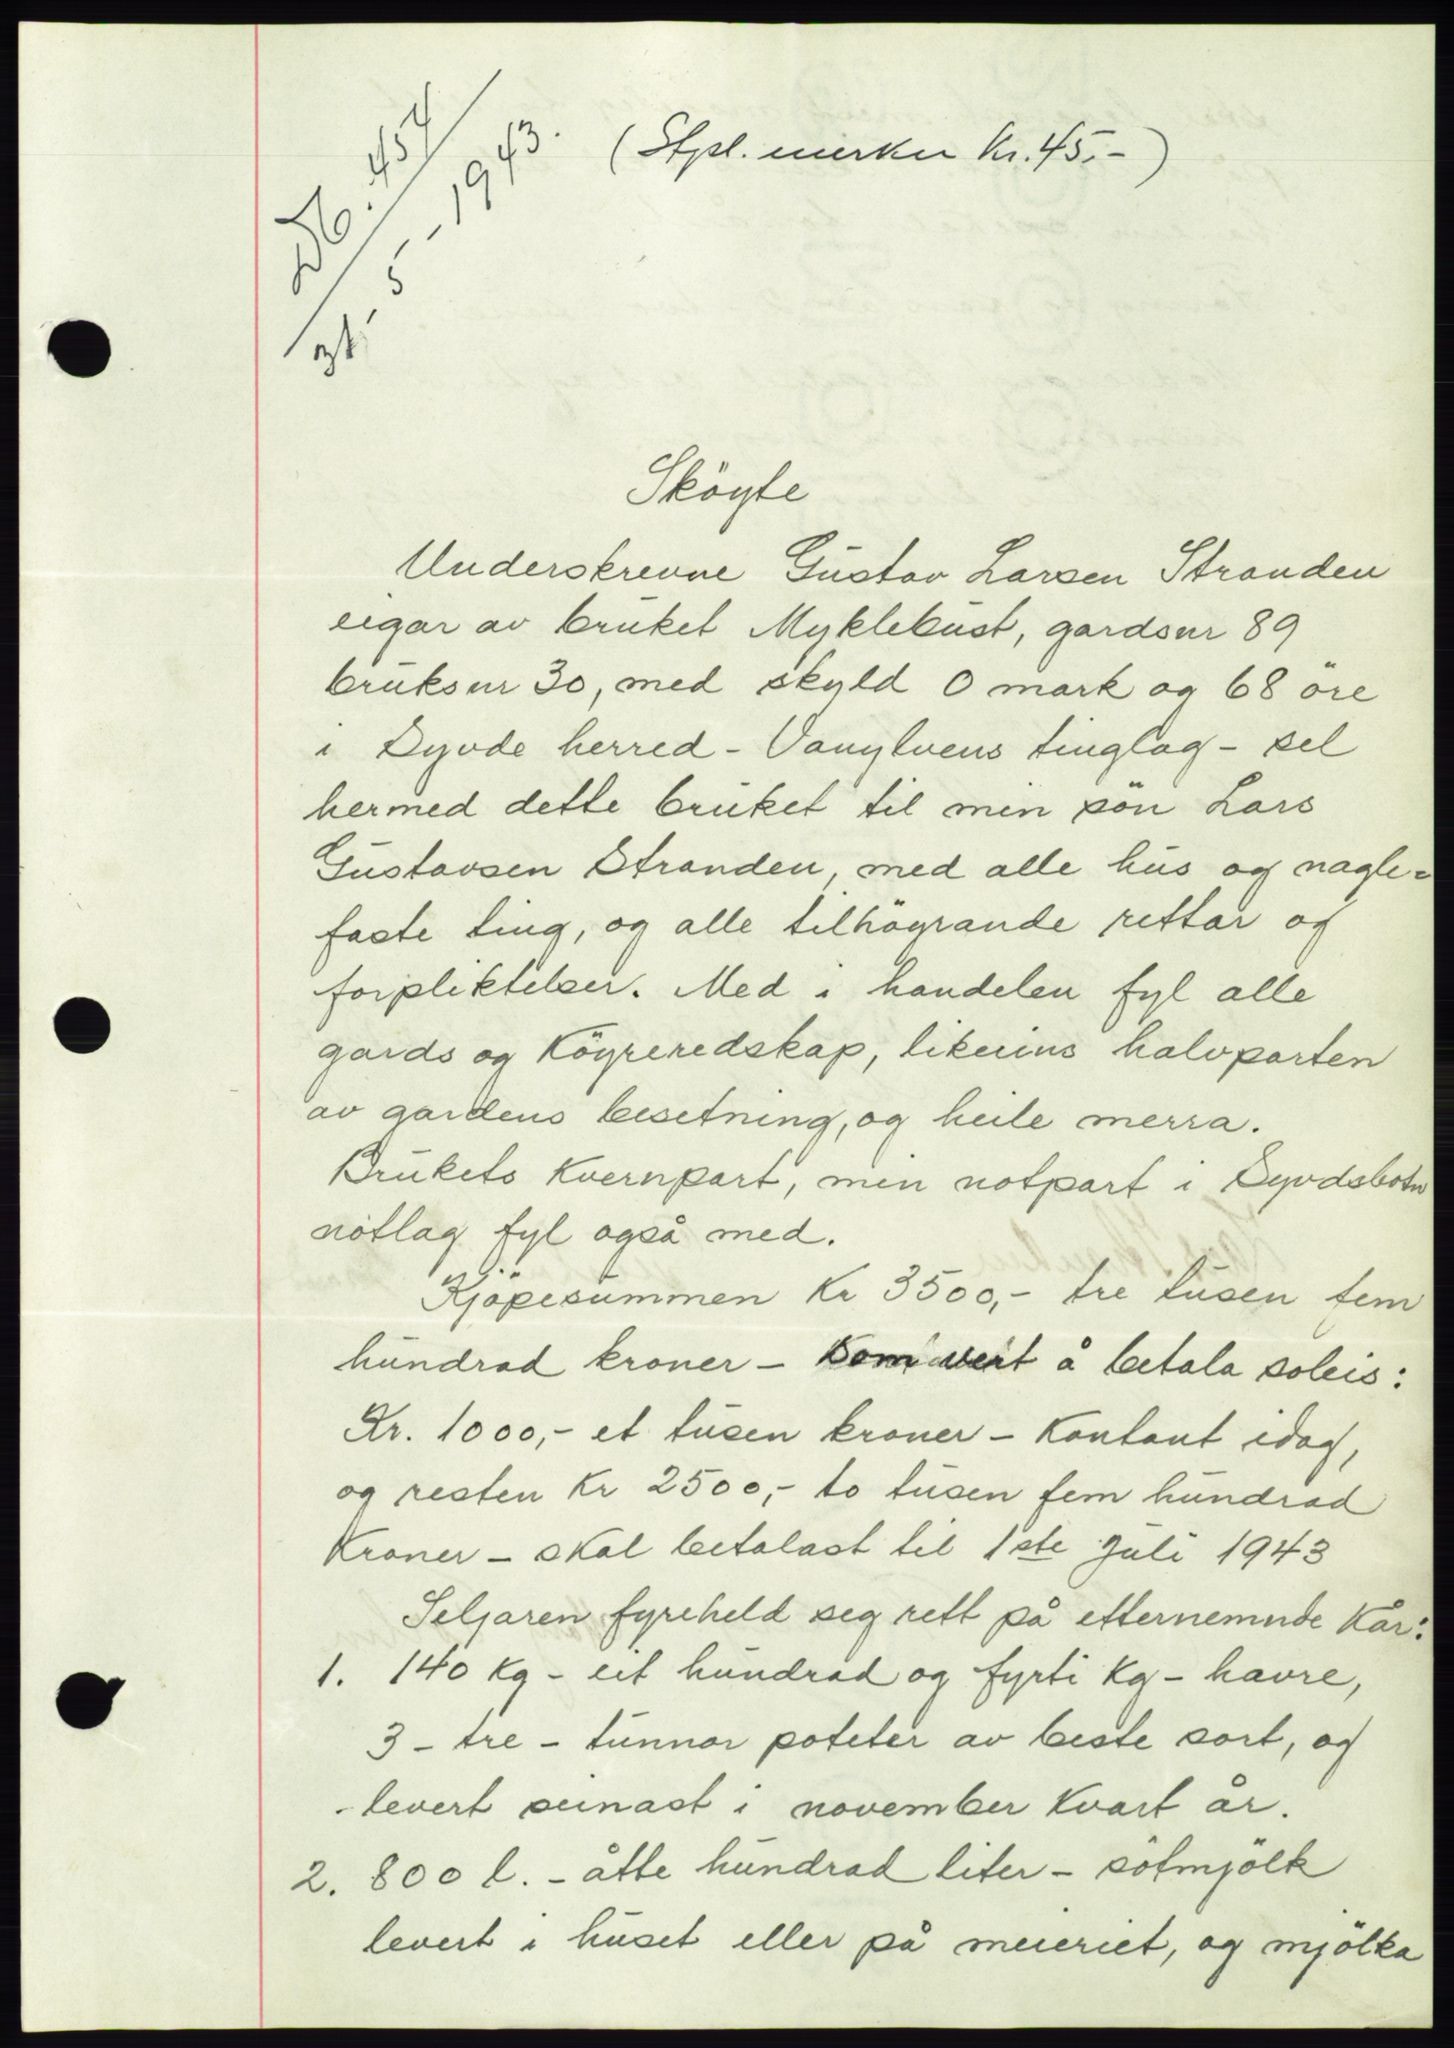 Db. 457
3/5 - 1943.
(Stpl. merker Kr. 45,-)
Sköyte
Underskrevne Gustav Larsen Stranden
eigar av bruket Myklebust, gardsnr 89
bruksnr 30, med skyld 0 mark og 68 öre
i Syvde herred - Vanylvens tinglag - sel
hermed dette bruket til min sön Lars
Gustavsen Stranden, med alle hus og nagle=
faste ting, og alle tilhöyrande rettar og
forpliktelser. Med i handelen fyl alle
gards og Köyreredskap, likeeins halvparten
av gardens besetning, og heile merra.
Brukets Kvernpart, min notpart i Syvdsbotn
notlag fyl også med.
Kjöpesummen Kr 3500,- tre tusen fem
hundrad kroner - som vert å betala soleis:
Kr. 1000,- et tusen kroner - Kontant idag,
og resten Kr 2500,- to tusen fem hundrad
Kroner - skal betalast til 1ste Juli 1943
Seljaren fyreheld seg rett på etternemnde Kår:
1. 140 Kg - eit hundrad og fyrti Kg - havre,
3 - tre - tunnor poteter av beste sort, og
levert seinast i november Kvart år.
2. 800 l. - åtte hundrad liter - sötmjölk
levert i huset eller på meieriet, og mjölka